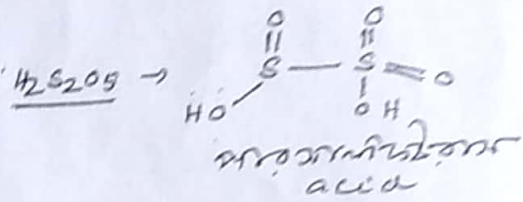 H2S2O5 →
O O
S — S = O
HO OH
acid